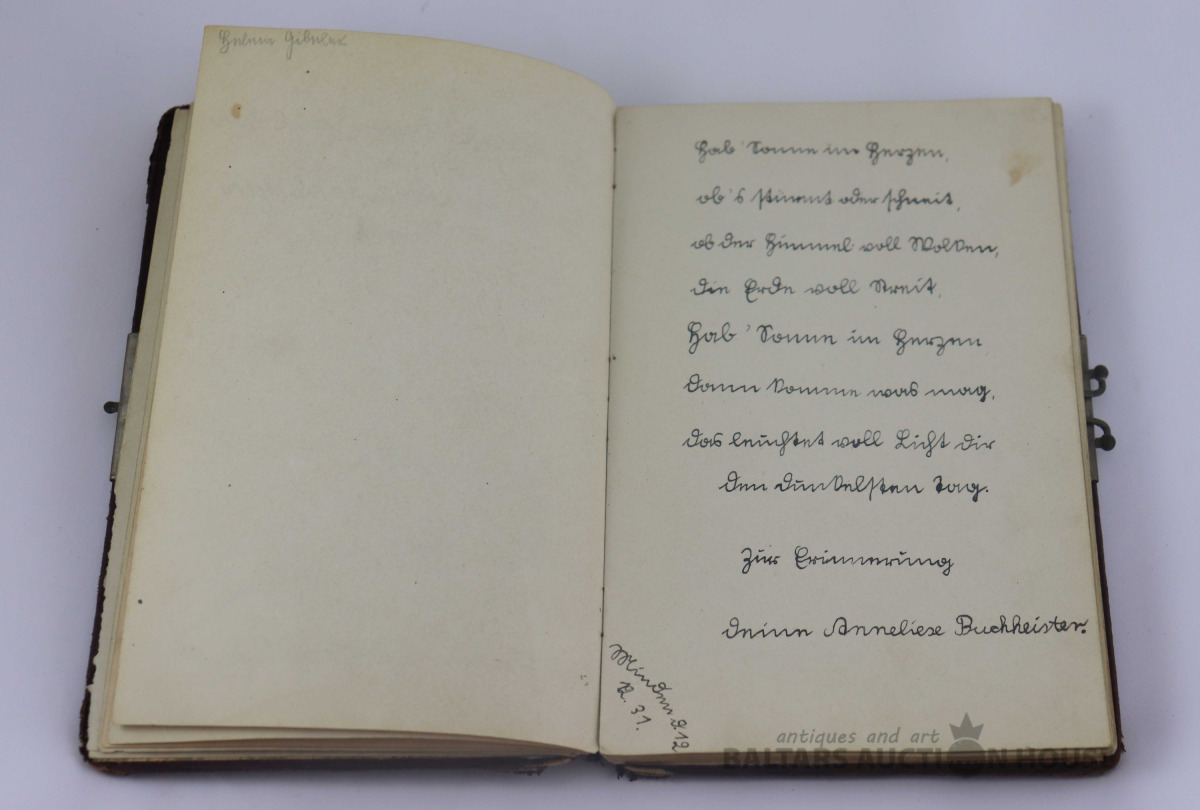 Hab' Sonne im Herzen,
ob's stürmt oder schneit,
ob der Himmel voll Wolken,
die Erde voll Streit,
Hab' Sonne im Herzen
dann komme was mag,
das leuchtet voll Licht dir
den dunkelsten Tag.
Zur Erinnerung
deine Anneliese Buchheister.
Minden d. 12
12. 31.
antiques and art
BALTARS AUCTION HOUSE